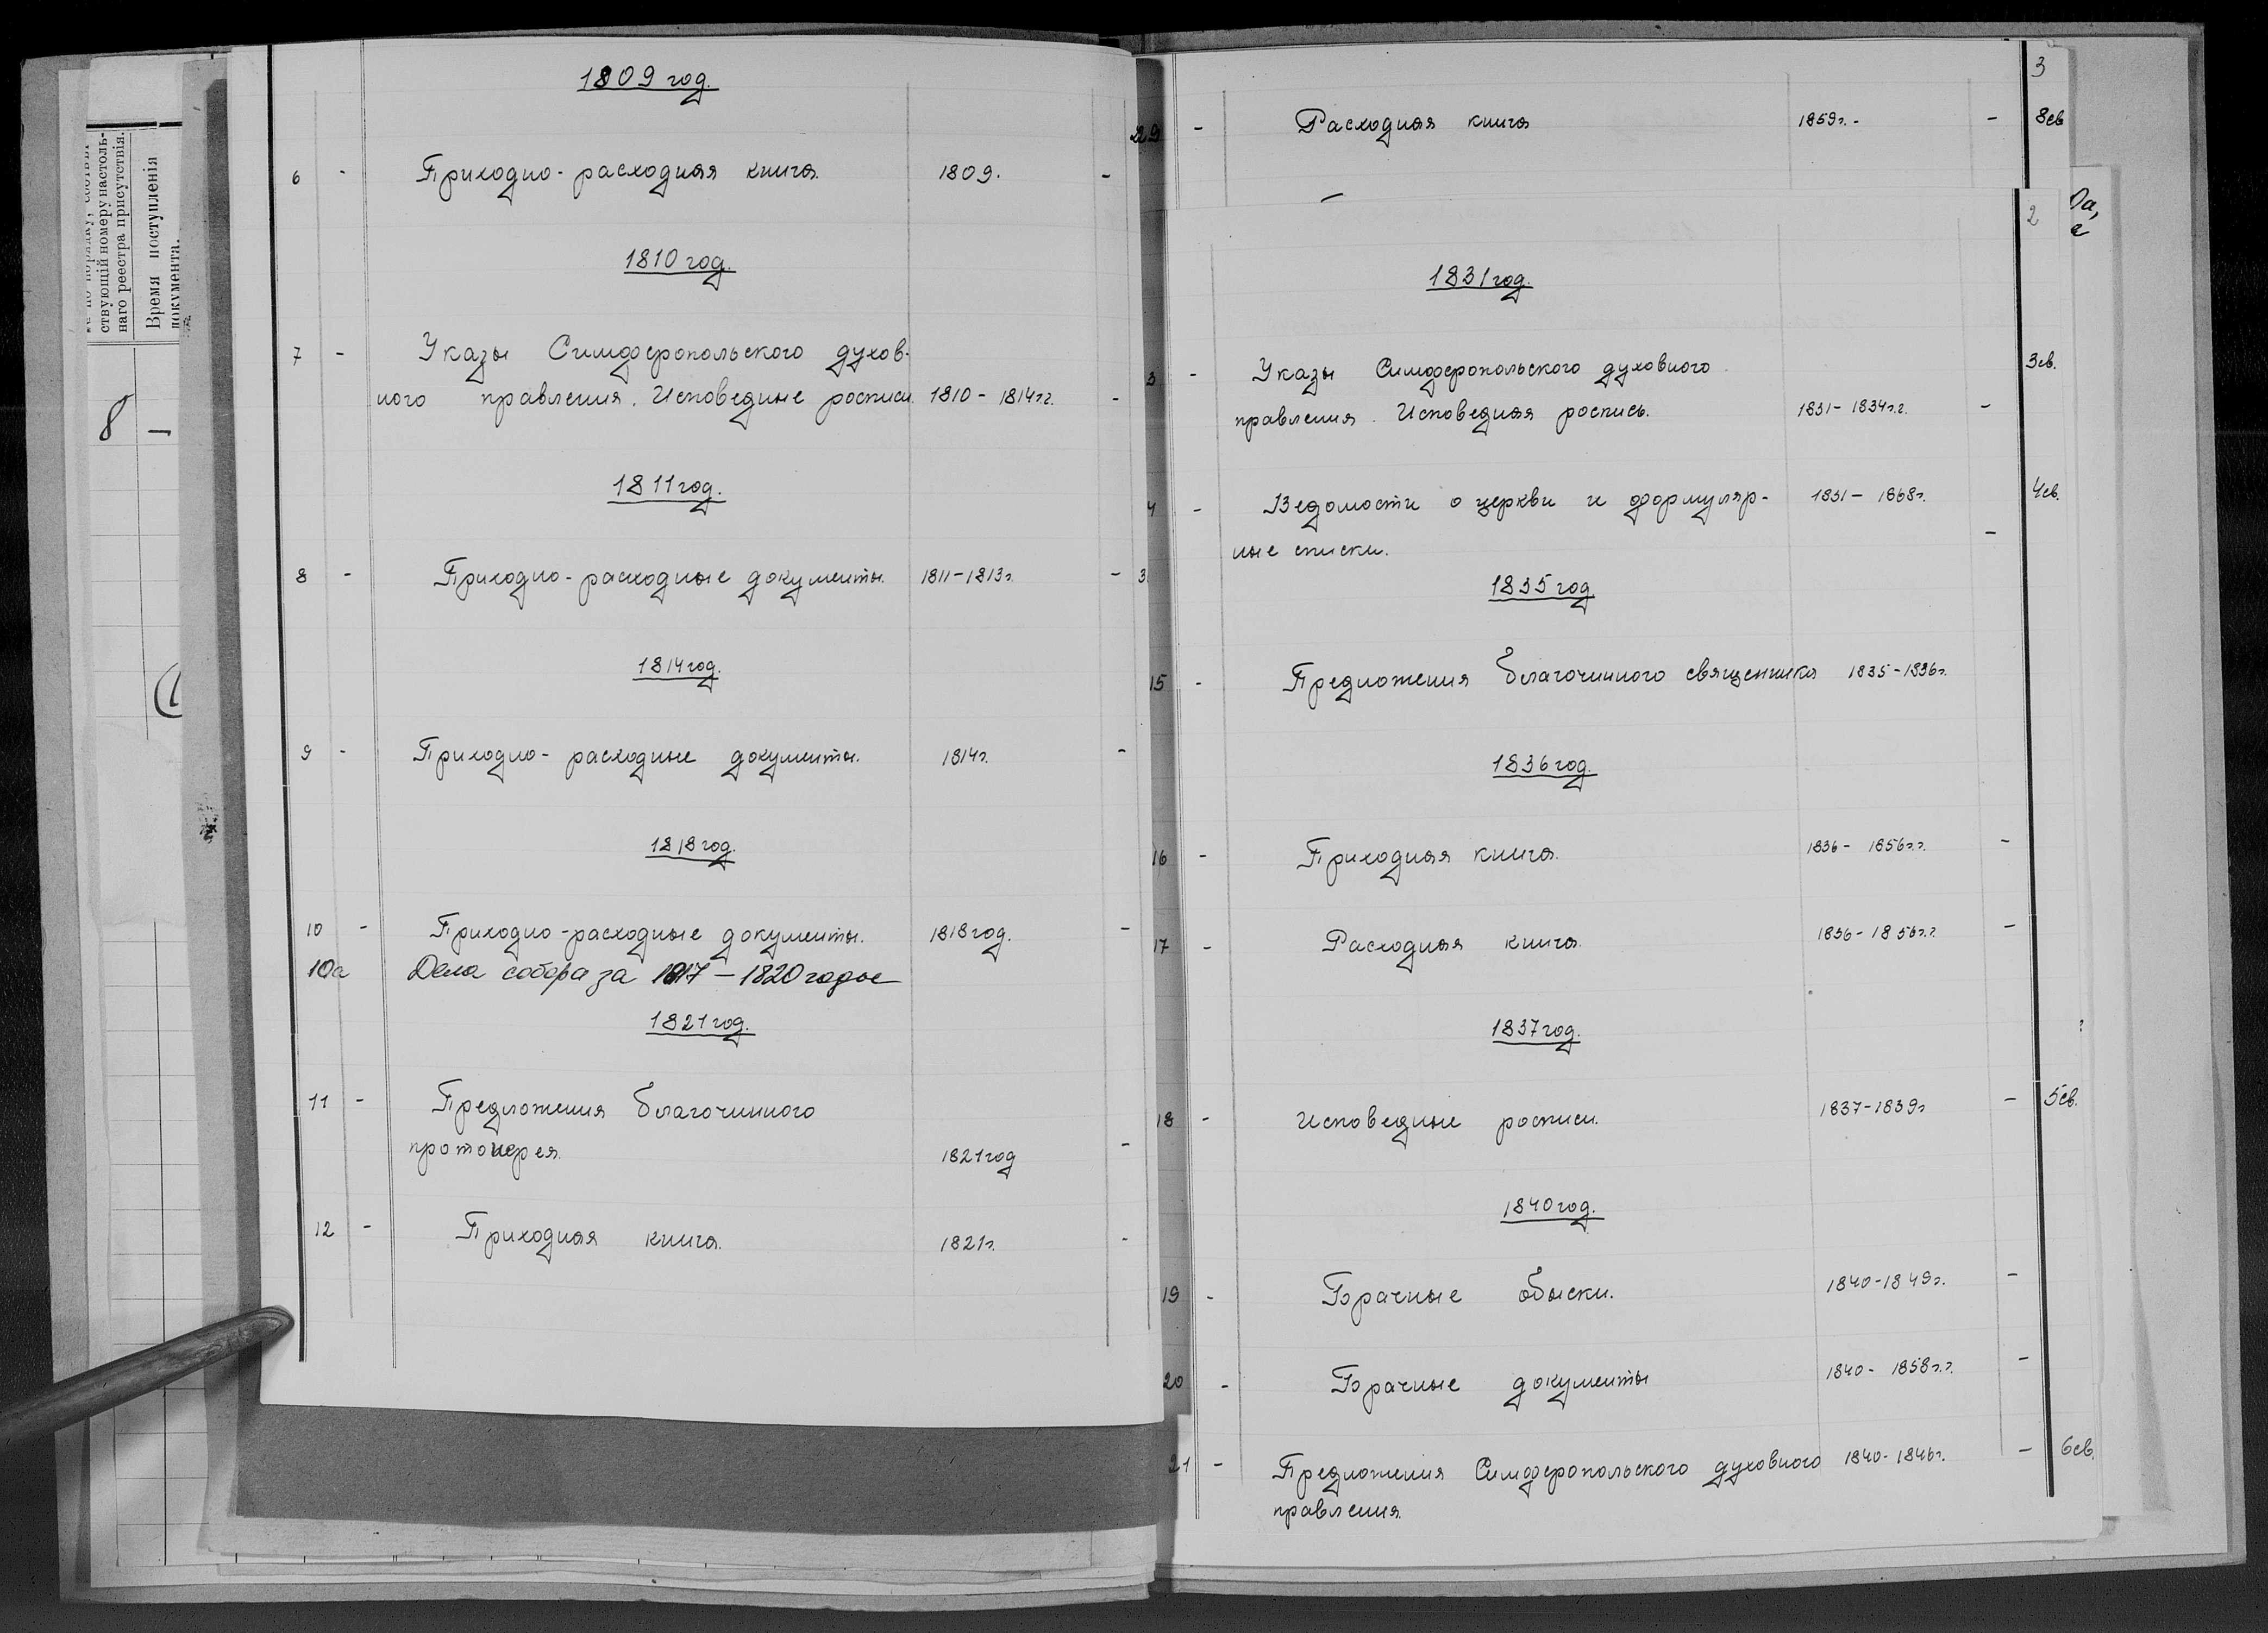 ствующій номеру настоль-
наго реестра присутствія.
Время поступленія
документа.
8 —
1809 год.
6 - Приходно-расходная книга 1809. -
1810 год.
7 - Указы Симферопольского духов-
ного правления. Исповедные росписи. 1810 - 1814г.г. -
1811 год.
8 - Приходно-расходные документы. 1811-1813г. -
1814 год.
9 - Приходно-расходные документы. 1814г. -
1818 год.
10 - Приходно-расходные документы. 1818 год. -
10а Дела собора за 1817 — 1820 годы
1821 год.
11 - Предложения благочинного
протоиерея. 1821 год -
12 - Приходная книга. 1821г. -
3
29 - Расходная книга 1859г. - - 8св
2
1831 год.
3 - Указы Симферопольского духовного 3св.
правления. Исповедная роспись. 1831- 1834г.г. -
4 - Ведомости о церкви и формуляр- 1831- 1868г. 4св.
ные списки. -
1835 год
15 - Предложения благочинного священника 1835-1836г.
1836 год.
16 - Приходная книга. 1836- 1856г.г. -
17 - Расходная книга. 1836- 1856г.г. -
1837 год.
18 - Исповедные росписи. 1837-1839г - 5св.
1840 год.
19 - Брачные обыски. 1840-1849г. -
20 - Брачные документы 1840- 1858г.г. -
21 - Предложения Симферопольского духовного 1840-1846г. - 6св.
правления.